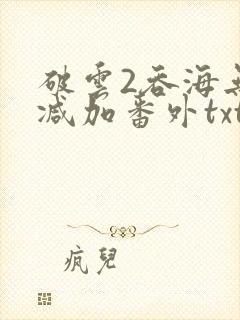 破雲2吞海無
减加番外txt
疯兒